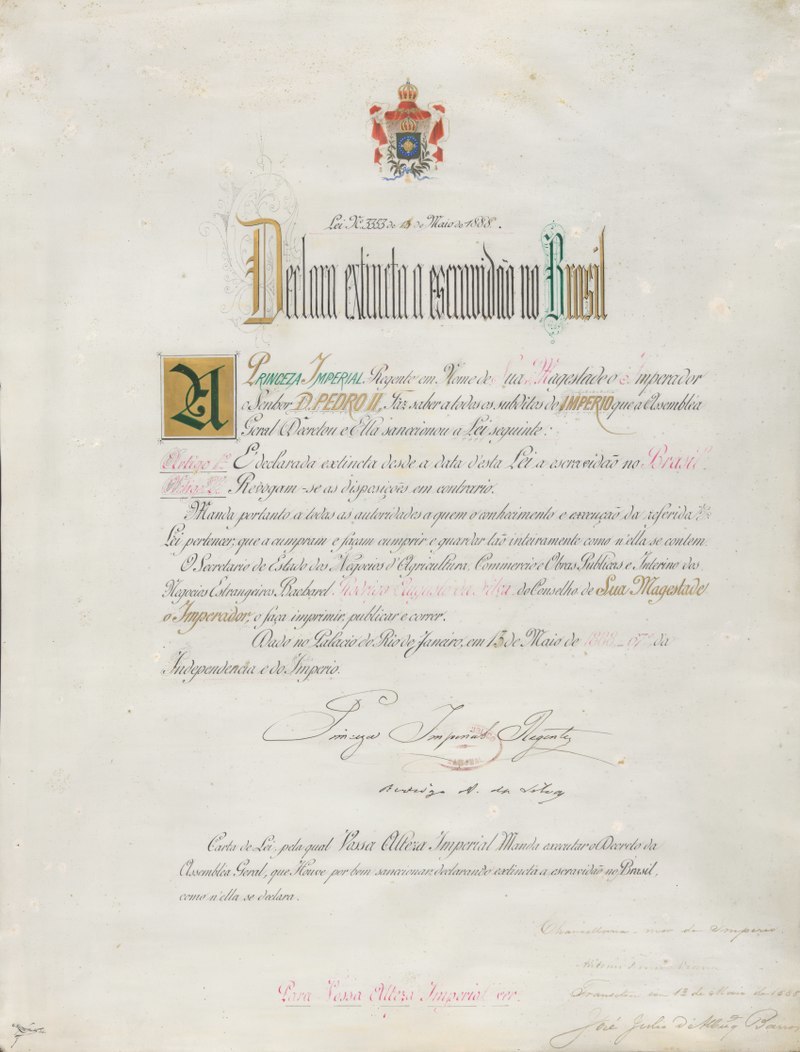 Lei Nº 3353 de 13 de Maio de 1888.
Declara extincta a escravidão no Brasil
A PRINCEZA IMPERIAL Regente em Nome de Sua Magestade o Imperador
o Senhor D. PEDRO II, Faz saber a todos os subditos do IMPERIO que a Assembléa
Geral Decretou e Ella sanccionou a Lei seguinte:
Artigo 1º É declarada extincta desde a data d'esta Lei a escravidão no Brasil.
Artigo 2º Revogam-se as disposições em contrario.
Manda portanto a todas as autoridades a quem o conhecimento e execução da referida
Lei pertencer, que a cumpram e façam cumprir e guardar tão inteiramente como n'ella se contem.
O Secretario de Estado dos Negocios d'Agricultura, Commercio e Obras Publicas e Interino dos
Negocios Estrangeiros Bacharel Rodrigo Augusto da Silva do Conselho de Sua Magestade
o Imperador, o faça imprimir, publicar e correr.
Dado no Palacio do Rio de Janeiro, em 13 de Maio de 1888 67º da
Independencia e do Imperio.
Princeza Imperial Regente
Rodrigo A. da Silva
Carta de Lei, pela qual Vossa Alteza Imperial Manda executar o Decreto da
Assembléa Geral, que Houve por bem sanccionar, declarando extincta a escravidão no Brasil,
como n'ella se declara.
Chancellaria-mor do Imperio.
Transitou em 13 de Maio de 1888
José Julio d'Albuqe Barros
Para Vossa Alteza Imperial ver.